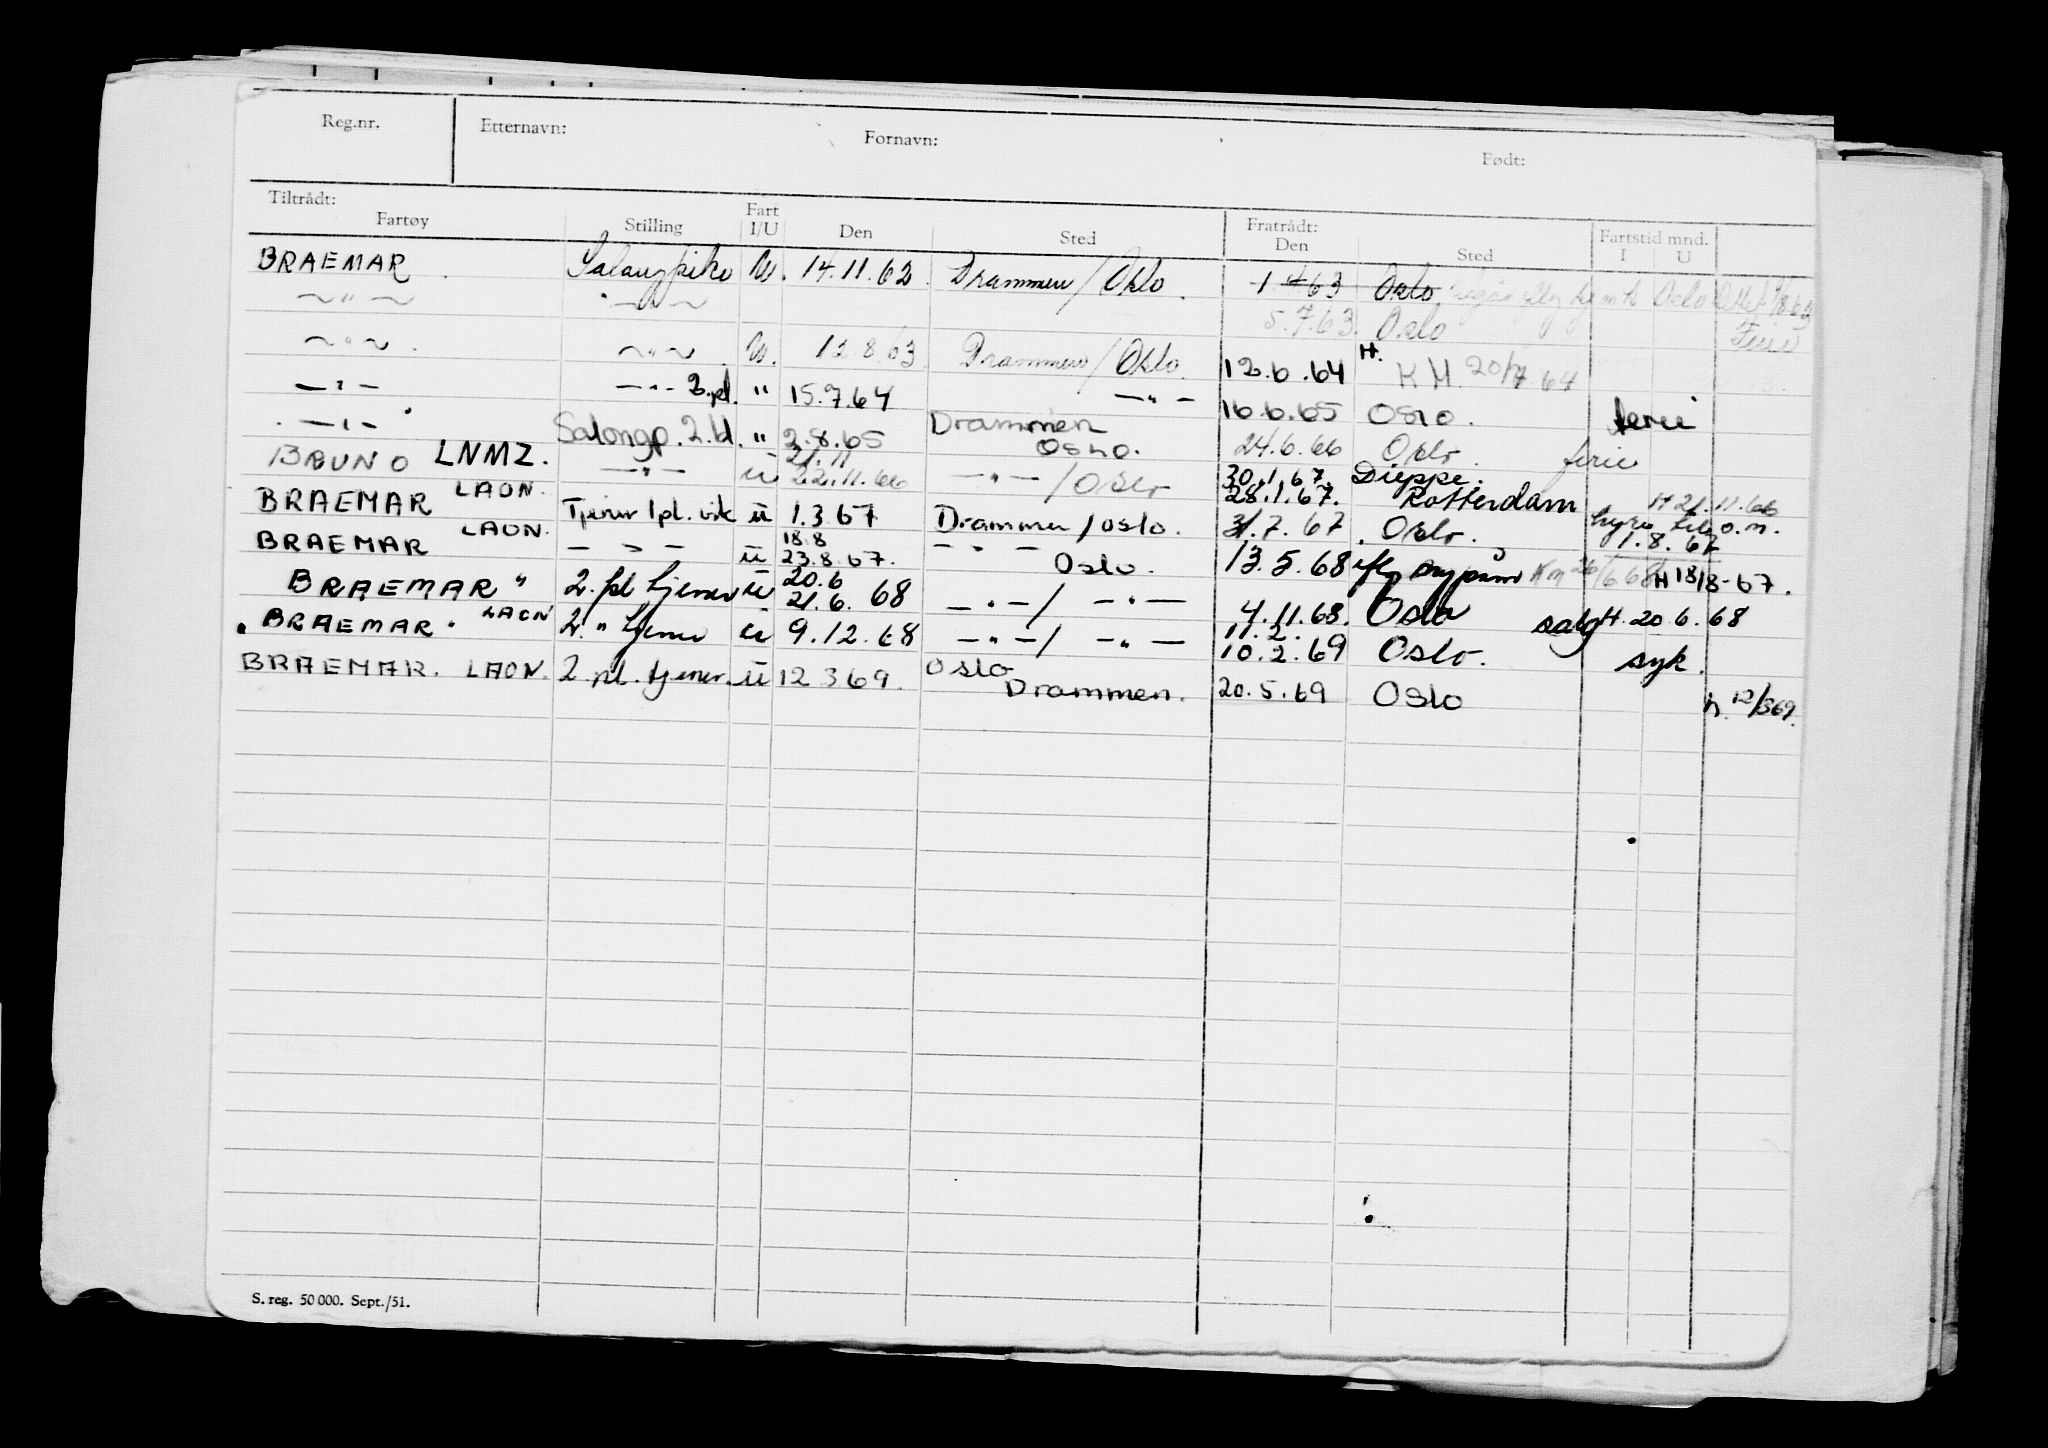 Reg.nr. Etternavn: Fornavn: Født:
Tiltrådt: Fratrådt:
Fartøy Stilling Fart I/U Den Sted Den Sted Fartstid mnd. I U
BRAEMAR . Salongpike U. 14.11.62 . Drammen / Oslo . 1 4 63 Oslo
~ " ~ ~ " ~ 5.7.63. Oslo Ferie
~ " ~ . ~ " ~ . U. 12.8.63 Drammen / Oslo. 12.6.64 H. KM. 20/7 64
— " — — " — 2.pl. " 15.7.64 — " — 16.6.65 OSLO . ferie
. — " — Salongp. 2.kl. " 2.8.65 Drammen OSLO. 24.6.66 Oslo . ferie
BRUNO LNMZ. — " — U 21.11 22.11.66 — " — / Oslo 30.1.67. Dieppe.
28.1.67. Rotterdam H 21.11.66
BRAEMAR LAON. Tjener 1pl. vik U 1.3.67 Drammen / oslo. 31.7.67 . Oslo . hyre til o.m. 1.8.67
BRAEMAR LAON. — " — U 18.8 23.8.67. — " — Oslo. 13.5.68 H 18/8-67.
BRAEMAR " 2. pl tjener U 20.6 21.6. 68 — " — / — " — 4.11.68. Oslo salg H. 20.6.68
. BRAEMAR . LAON 2. " tjener U 9.12.68 — " — / — " — 11.2. 10.2.69 Oslo. syk.
BRAEMAR. LAON. 2. pl. tjener. U 12 3 69. Oslo Drammen. 20.5.69 OSLO h. 12/3 69.
S. reg. 50 000. Sept./51.